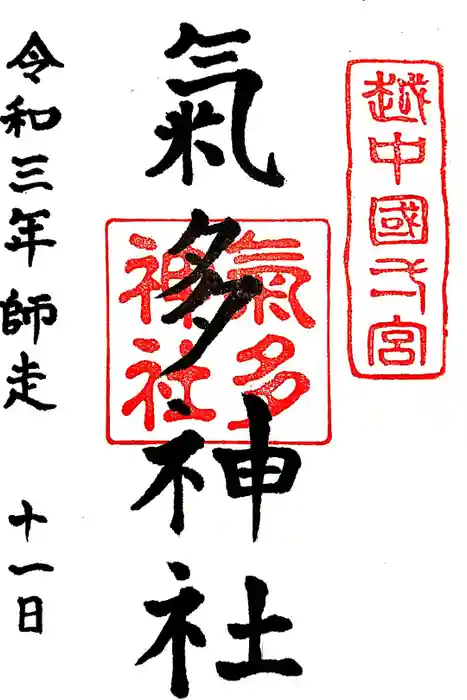 越中國弌宮
氣多神社
氣多
神社
令和三年師走 十一日